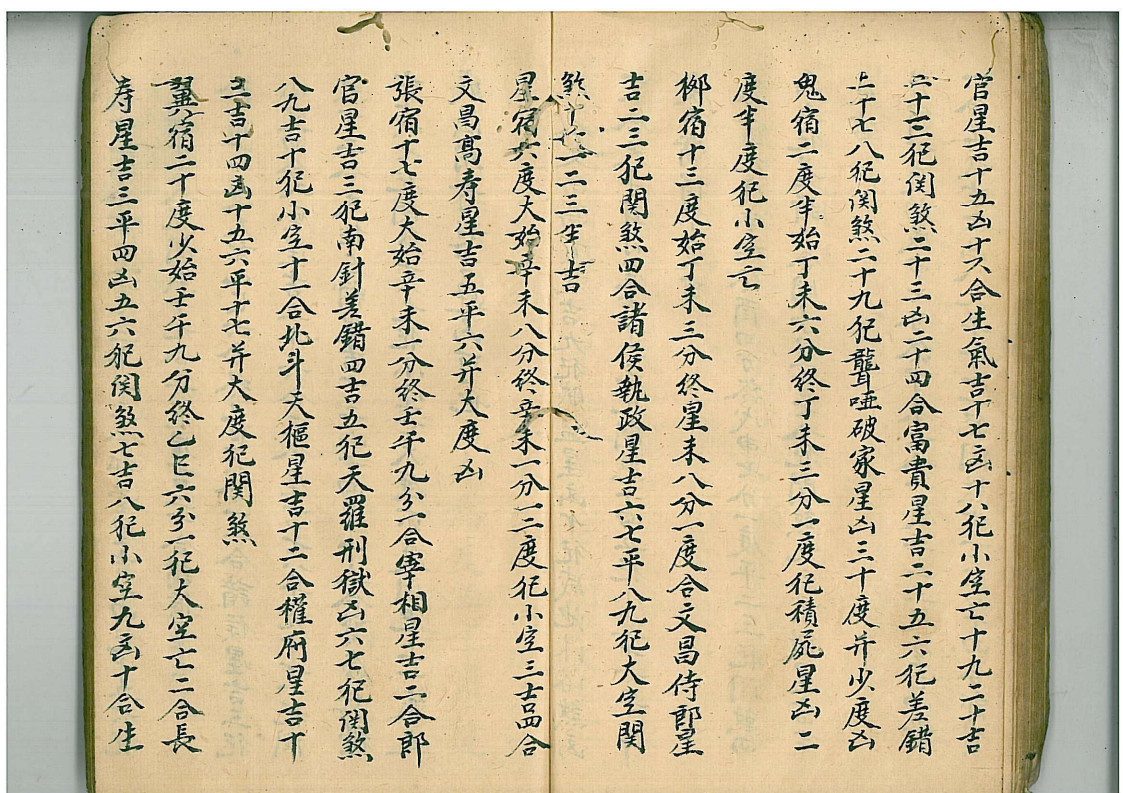 官星吉十五凶十六合生氣吉十七凶十八犯小空亡十九二十吉
二十三犯関煞二十三凶二十四合富貴星吉二十五六犯差錯
二十七八犯関煞二十九犯聾啞破家星凶三十度并少度凶
鬼宿二度半始丁未六分終丁未三分一度犯積屍星凶二
度半度犯小空亡
柳宿十三度始丁未三分終星未八分一度合文昌侍郎星
吉二三犯関煞四合諸侯執政星吉六七平八九犯大空関
煞十一二三半吉
星宿六度大始辛未八分終辛未一分一二度犯小空三吉四合
文昌高寿星吉五平六并大度凶
張宿十七度大始辛未一分終壬午九分一合宰相星吉二合郎
官星吉三犯南針差錯四吉五犯天羅刑獄凶六七犯関煞
八九吉十犯小空十一合北斗天樞星吉十二合權府星吉十
三吉十四凶十五六平十七并大度犯関煞
翼宿二十度少始壬午九分終乙巳六分一犯大空亡二合長
寿星吉三平四凶五六犯関煞七吉八犯小空九凶十合生